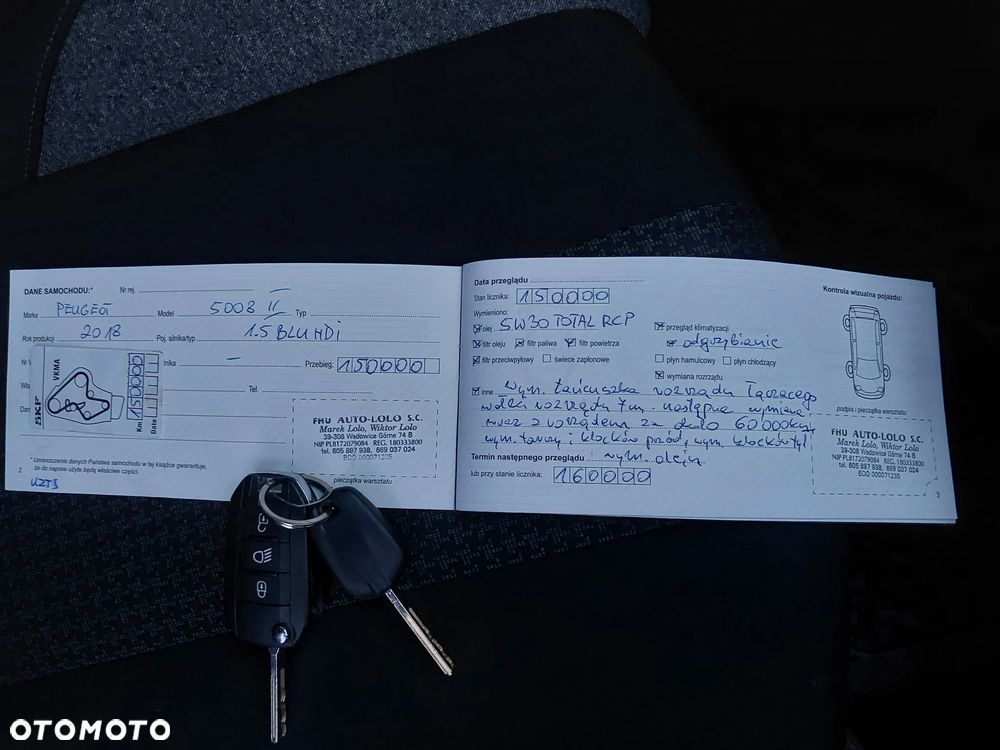 DANE SAMOCHODU:*
Nr rej. —
Marka PEUGEOT Model 5008 II Typ
Rok produkcji 2018 Poj. silnika/typ 1.5 BLUHDI
Nr
lnika — Przebieg: 150000
Tel.
SKF VKMA
Km 150000
Date
FHU AUTO-LOLO S.C.
Marek Lolo, Wiktor Lolo
39-308 Wadowice Górne 74 B
NIP PL8172079084 REG. 180333800
tel. 605 897 938, 669 037 024
BDO 000071235
* Umieszczenie danych Państwa samochodu w tej książce gwarantuje,
że do napraw użyte będą właściwe części.
pieczątka warsztatu
2
Data przeglądu
Stan licznika: 150000
Wymieniono:
olej 5W30 TOTAL RCP
filtr oleju filtr paliwa filtr powietrza
filtr przeciwpyłowy świece zapłonowe
przegląd klimatyzacji
odgrzybianie
płyn hamulcowy płyn chłodzący
wymiana rozrządu
inne Wym. łańcuszka rozrządu łączącego
wałki rozrządu 7mm. następna wymiana
wraz z rozrządem za około 60000km,
wym. tarczy i klocków przód, wym. klocków tył
Termin następnego przeglądu wym. oleju
lub przy stanie licznika: 160000
Kontrola wizualna pojazdu:
podpis i pieczątka warsztatu:
FHU AUTO-LOLO S.C.
Marek Lolo, Wiktor Lolo
39-308 Wadowice Górne 74 B
NIP PL8172079084 REG. 180333800
tel. 605 897 938, 669 037 024
BDO 000071235
3
OTOMOTO